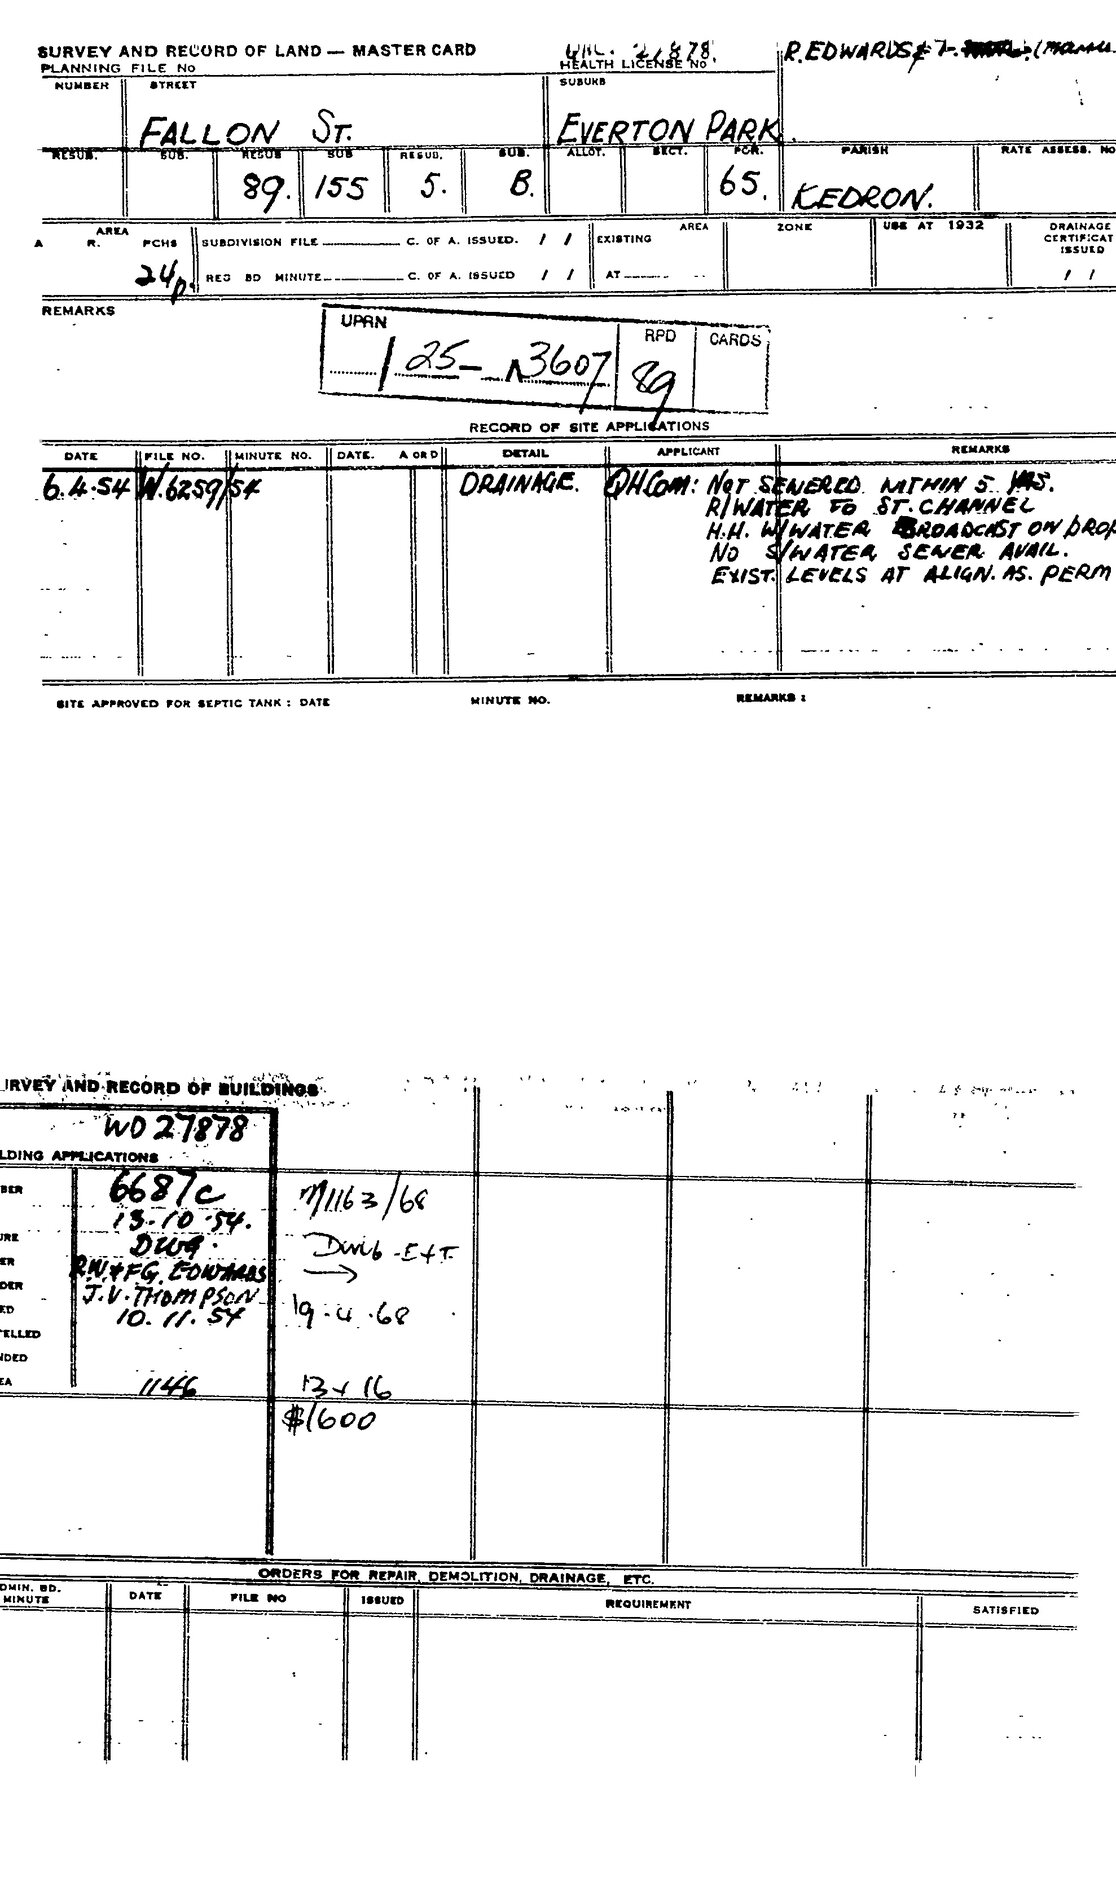 SURVEY AND RECORD OF LAND — MASTER CARD
PLANNING FILE No
27878.
HEALTH LICENSE No.
R. EDWARDS &
NUMBER STREET SUBURB
FALLON ST. EVERTON PARK.
RESUB. SUB. RESUB SUB RESUB. SUB. ALLOT. SECT. POR. PARISH RATE ASSESS. NO
89. 155 5. B. 65. KEDRON.
AREA
A R. PCHS
24p.
SUBDIVISION FILE C. OF A. ISSUED. / /
REG BD MINUTE C. OF A. ISSUED / /
EXISTING AREA
AT
ZONE
USE AT 1932
DRAINAGE
CERTIFICAT
ISSUED
/ /
REMARKS
UPRN RPD CARDS
/ 25 - 3607 89
RECORD OF SITE APPLICATIONS
DATE FILE NO. MINUTE NO. DATE. A OR D DETAIL APPLICANT REMARKS
6.4.54 W.6259/54 DRAINAGE. QHCom: NOT SEWERED WITHIN 5 YRS.
R/WATER TO ST. CHANNEL
H.H. W/WATER BROADCAST ON PROP
NO S/WATER SEWER AVAIL.
EXIST. LEVELS AT ALIGN. AS. PERM
SITE APPROVED FOR SEPTIC TANK : DATE MINUTE NO. REMARKS :
URVEY AND RECORD OF BUILDINGS
WO 27878
LDING APPLICATIONS
BER 6687c 1163/68
13.10.54.
URE DWG. -EXT.
ER R.W. & F.G. EDWARDS
DER J.V. THOMPSON
ED 10.11.54 19.4.68
TELLED
NDED
EA 1146 13 x 16
$1600
ORDERS FOR REPAIR, DEMOLITION, DRAINAGE, ETC.
DMIN. BD.
MINUTE DATE FILE NO ISSUED REQUIREMENT SATISFIED